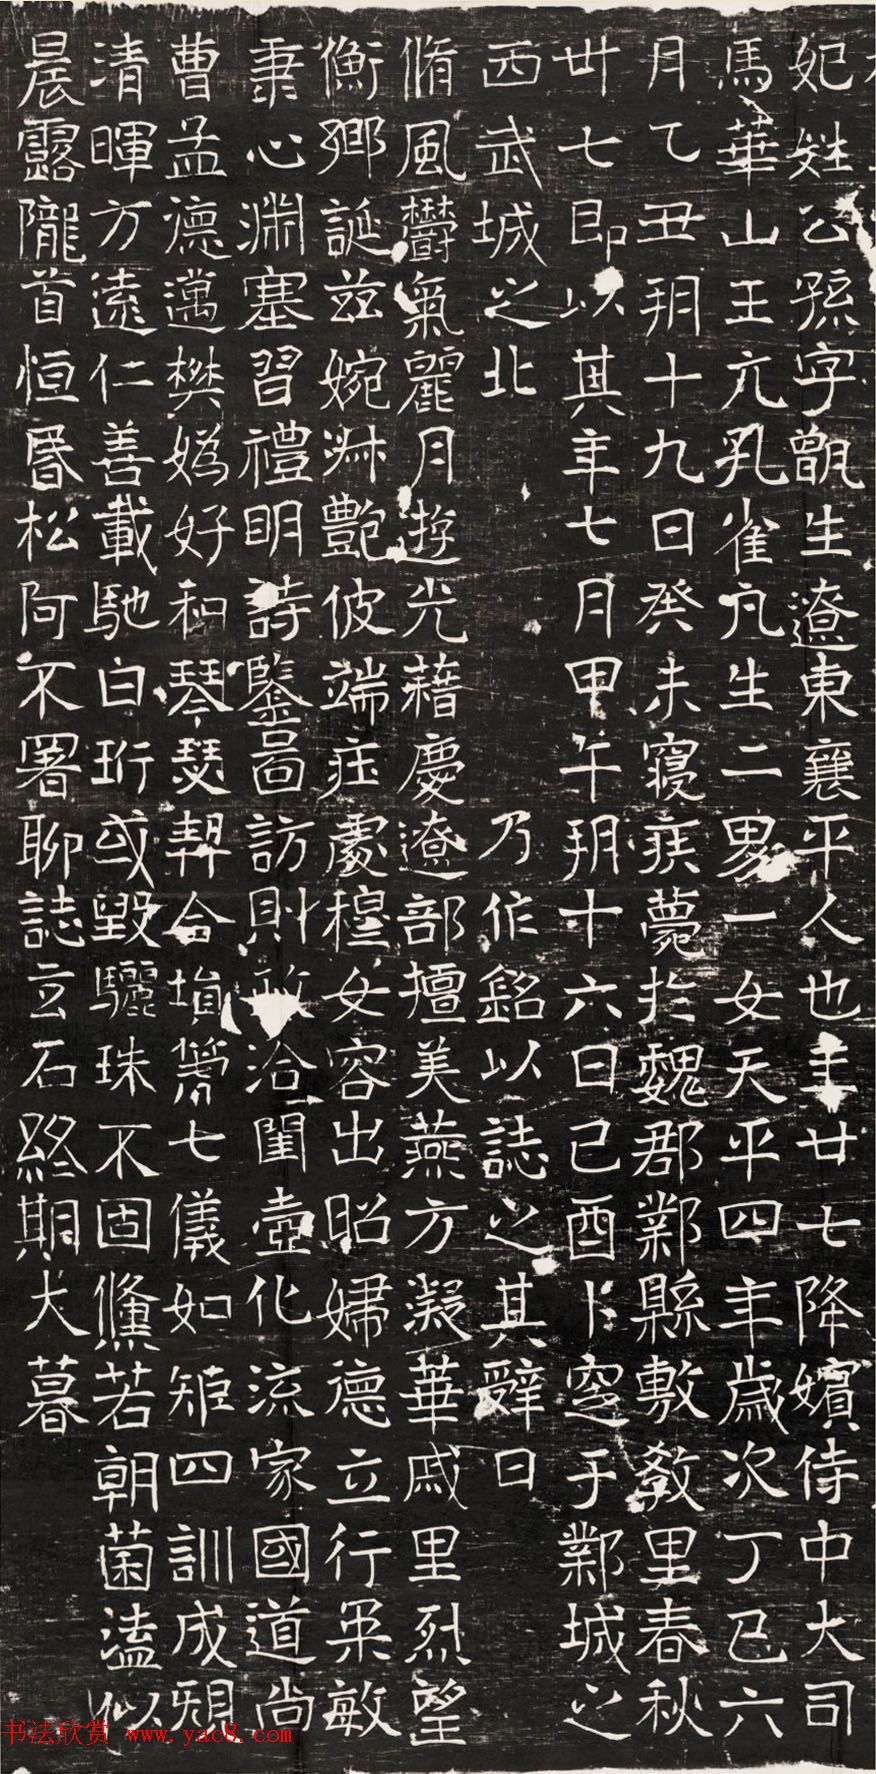 妃姓公孫字甑生遼東襄平人也年廿七降嬪侍中大司
馬華山王亢孔雀凡生二男一女天平四年歲次丁巳六
月乙丑朔十九日癸未寢疾薨於魏郡鄴縣敷教里春秋
卅七即以其年七月甲午朔十六日己酉卜窆于鄴城之
西武城之北 乃作銘以誌之其辭曰
脩風鬱氣麗月遊光藉慶遼部擅美燕方凝華戚里烈望
衡鄉誕茲婉淑艷彼端莊處穆女容出昭婦德立行柔敏
秉心淵塞習禮明詩鑒啚訪則政洽閨壼化流家國道尚
曹孟德邁樊媯好和琴瑟契合塤箎七儀如矩四訓成規
清暉方遠仁善載馳白珩或毀驪珠不固儵若朝菌溘似
晨露隴首恒昏松阿不署聊誌玄石終期大暮
书法欣赏 www.yac8.com